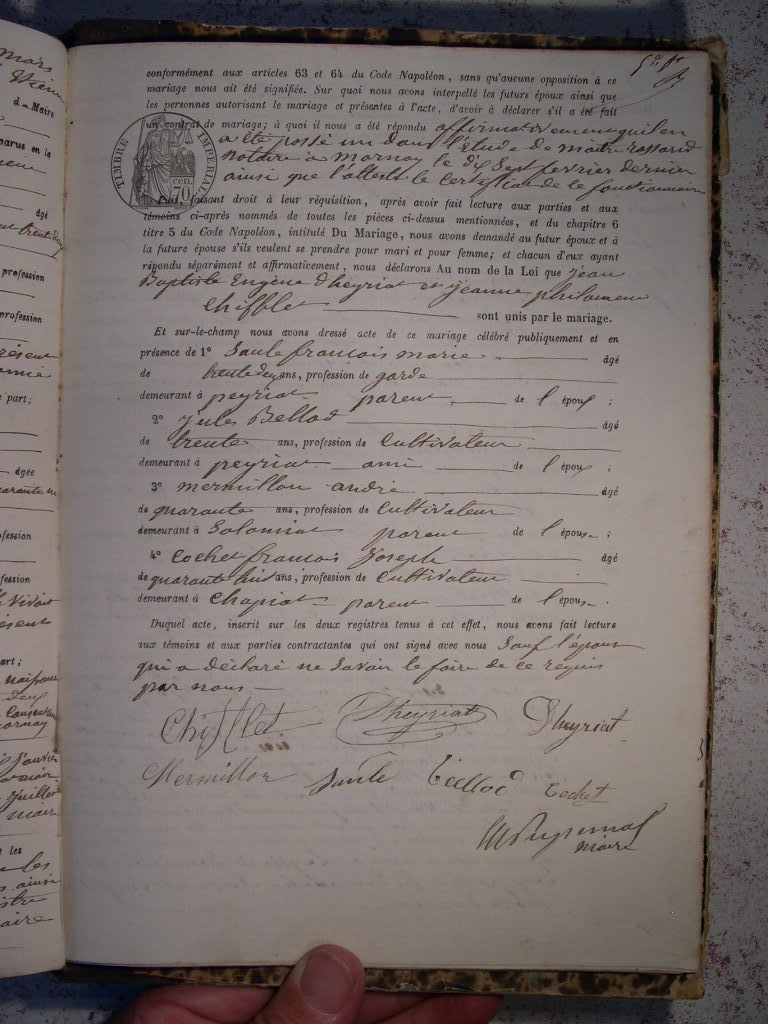 mars
à Mairie
parus en la
âgé
profession
rofession
résent
part;
âgée
quarante
ofession
fession
art;
Juillet
maire
t les
maire
conformément aux articles 63 et 64 du Code Napoléon, sans qu'aucune opposition à ce
mariage nous ait été signifiée. Sur quoi nous avons interpellé les futurs époux ainsi que
les personnes autorisant le mariage et présentes à l'acte, d'avoir à déclarer s'il a été fait
un contrat de mariage; à quoi il nous a été répondu affirmativement qu'il en
a été passé un dans l'Étude de maître rossand
notaire à mornay le dix sept février dernier
ainsi que l'atteste le certificat de le fonctionnaire
TIMBRE IMPERIAL
70 CEN.
Puis, faisant droit à leur réquisition, après avoir fait lecture aux parties et aux
témoins ci-après nommés de toutes les pièces ci-dessus mentionnées, et du chapitre 6
titre 5 du Code Napoléon, intitulé Du Mariage, nous avons demandé au futur époux et à
la future épouse s'ils veulent se prendre pour mari et pour femme; et chacun d'eux ayant
répondu séparément et affirmativement, nous déclarons Au nom de la Loi que jean
Baptiste Eugène Dheyriat et jeanne philomène
chifflet sont unis par le mariage.
Et sur-le-champ nous avons dressé acte de ce mariage célébré publiquement et en
présence de 1° Saule francois marie âgé
de trente deux ans, profession de garde
demeurant à peyriat parent de l'époux ;
2° jules Bellod âgé
de trente ans, profession de Cultivateur
demeurant à peyriat ami de l'époux ;
3° mermillon andré âgé
de quarante ans, profession de Cultivateur
demeurant à Solomiat parent de l'épouse ;
4° Cochet francois Joseph âgé
de quarante huit ans, profession de Cultivateur
demeurant à Chapiat parent de l'épouse .
Duquel acte, inscrit sur les deux registres tenus à cet effet, nous avons fait lecture
aux témoins et aux parties contractantes qui ont signé avec nous sauf l'épouse
qui a déclaré ne savoir le faire de ce requis
par nous
Chifflet Dheyriat Dheyriat
Mermillon Saule Bellod Cochet
maire